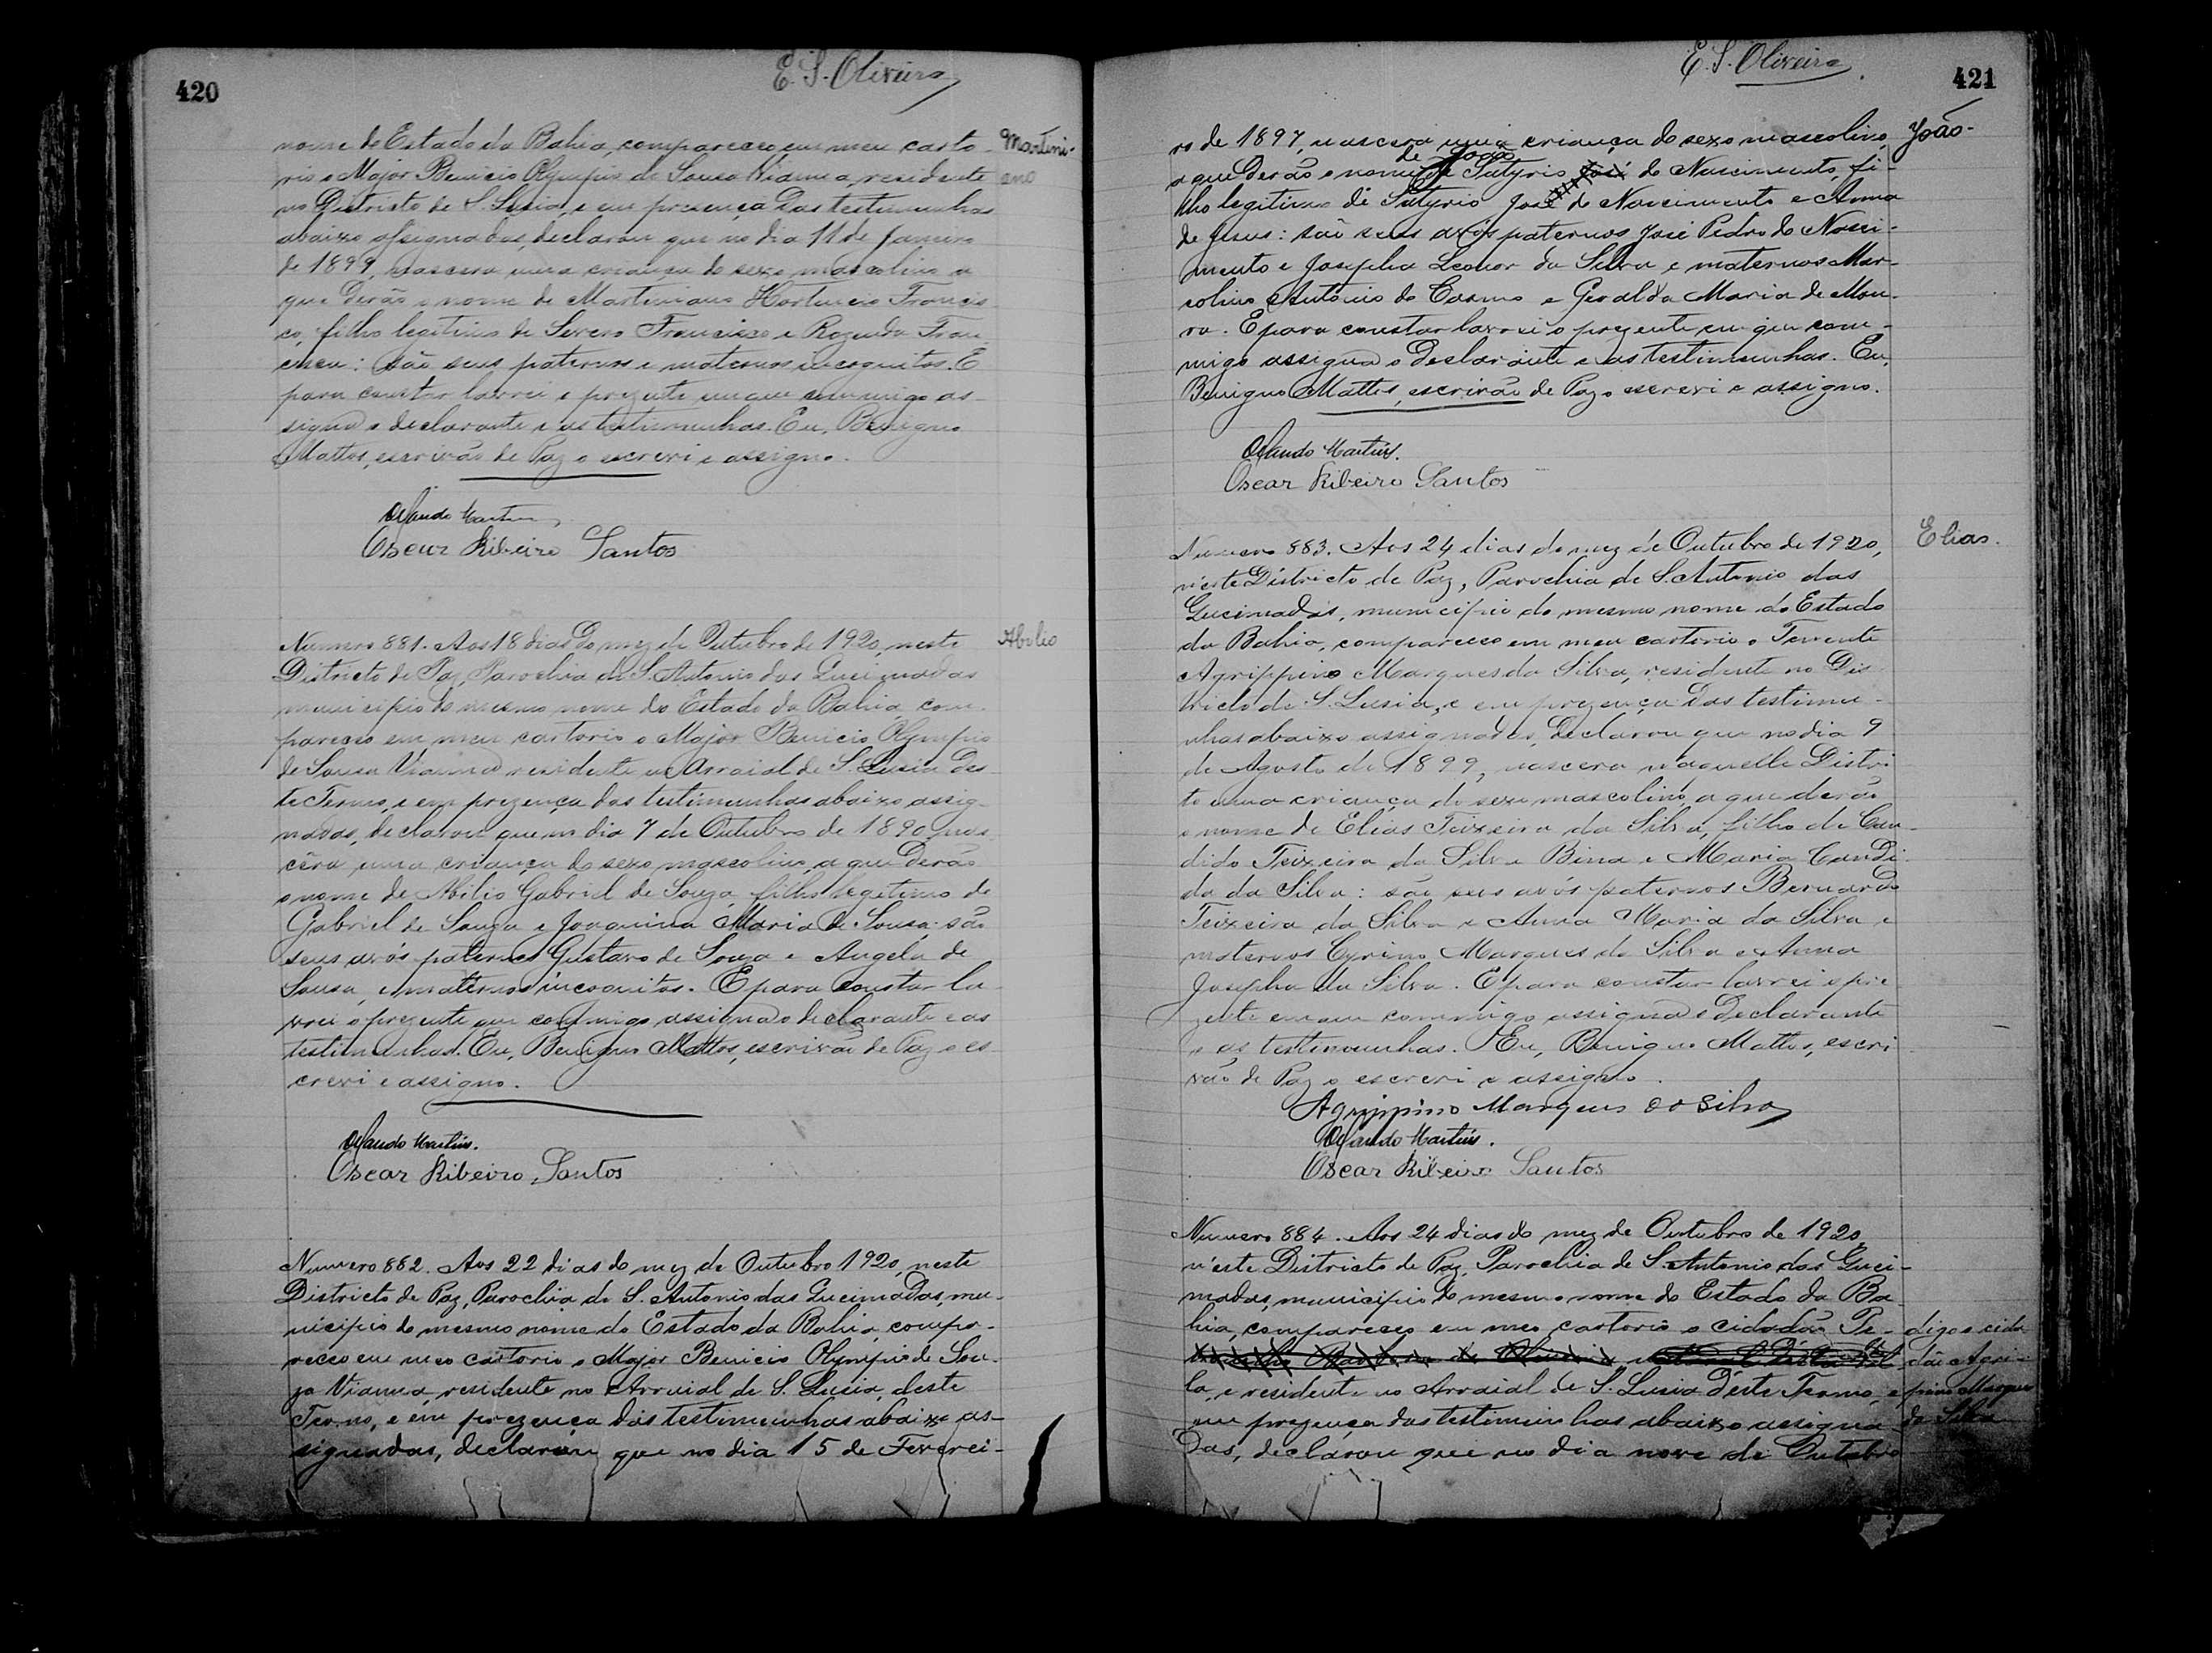 420
E. S. Oliveira
nome do Estado da Bahia, compareceo em meu carto-
Martini-
rio o Major Benicio Olympio de Sousa Vianna, residente
ano
no Districto de S. Lusia, e em presença das testimunhas
abaixo assignadas, declarou que no dia 11 de Janeiro
de 1899, nascera uma criança do sexo mascolino a
que derão o nome de Martiniano Francis-
co, filho legitimo de Francisco e Fran-
cisca: são seus paternos e maternos incognitos. E
para constar lavrei o prezente em que commigo as-
signa o declarante e as testimunhas. Eu, Benigno
Mattos, escrivão de Paz o escrevi e assigno.
Orlando Martins
Oscar Ribeiro Santos
Numero 881. Aos 18 dias do mez de Outubro de 1920, neste
Abilio
Districto de Paz, Parochia de S. Antonio das Queimadas
municipio do mesmo nome do Estado da Bahia, com-
pareceo em meu cartorio o Major Benicio Olympio
de Sousa Vianna residente no Arraial de S. Lusia des-
te Termo, e em prezença das testimunhas abaixo assig-
nadas, declarou que no dia 7 de Outubro de 1890, nas-
cêra uma criança do sexo mascolino, a que derão
o nome de Abilio Gabriel de Souza, filho legitimo de
Gabriel de Souza e Joaquina Maria de Sousa: são
seus avós paternos Gustavo de Souza e Angela de
Sousa, e maternos incognitos. E para constar la-
vrei o prezente que commigo assigna o declarante e as
testimunhas. Eu, Benigno Mattos, escrivão de Paz o es-
crevi e assigno.
Orlando Martins.
Oscar Ribeiro Santos
Numero 882. Aos 22 dias do mez de Outubro 1920, neste
Districto de Paz, Parochia de S. Antonio das Queimadas, mu-
nicipio do mesmo nome do Estado da Bahia, compa-
receo em meo cartorio o Major Benicio Olympio de Sou-
za Vianna, residente no Arraial de S. Lusia, deste
Termo, e em prezença das testimunhas abaixo as-
signadas, declarou que no dia 15 de Feverei-
421
E. S. Oliveira
ro de 1897, nascera uma criança do sexo mascolino,
João-
de João
a que derão o nome de Satyrio José do Nascimento, fi-
lho legitimo de Satyrio José do Nascimento e Anna
de Jesus: são seus avós paternos José Pedro do Nasci-
mento e Josepha Leonor da Silva e maternos Mar-
colino Antonio do Carmo e Geralda Maria de Mou-
ra. E para constar lavrei o prezente em que com-
migo assigna o declarante e as testimunhas. Eu,
Benigno Mattos, escrivão de Paz o escrevi e assigno.
Orlando Martins.
Oscar Ribeiro Santos
Numero 883. Aos 24 dias do mez de Outubro de 1920,
Elias.
n'este Districto de Paz, Parochia de S. Antonio das
Queimadas, municipio do mesmo nome do Estado
da Bahia, compareceo em meu cartorio o Tenente
Agrippino Marques da Silva, residente no Dis-
tricto de S. Lusia, e em prezença das testimu-
nhas abaixo assignadas, declarou que no dia 9
de Agosto de 1899, nascera naquelle Distri-
to uma criança do sexo mascolino, a que derão
o nome de Elias Teixeira da Silva, filho de Can-
dido Teixeira da Silva Bina e Maria Candi-
da da Silva: são seus avós paternos Bernardo
Teixeira da Silva e Anna Maria da Silva e
maternos Cyrino Marques da Silva e Anna
Josepha da Silva. E para constar lavrei o pre-
zente em que commigo assigna o declarante
e as testimunhas. Eu, Benigno Mattos, escri-
vão de Paz o escrevi e assigno.
Agrippino Marques da Silva
Orlando Martins.
Oscar Ribeiro Santos
Numero 884. Aos 24 dias do mez de Outubro de 1920
n'este Districto de Paz, Parochia de S. Antonio das Quei-
madas, municipio do mesmo nome do Estado da Ba-
hia, compareceo em meo cartorio o cidadão Te-
digo o cida
dão Agri-
la, e residente no Arraial de S. Lusia d'este Termo, e
ppino Marques
em prezença das testimunhas abaixo assigna-
da Silva
das, declarou que no dia nove de Outubro